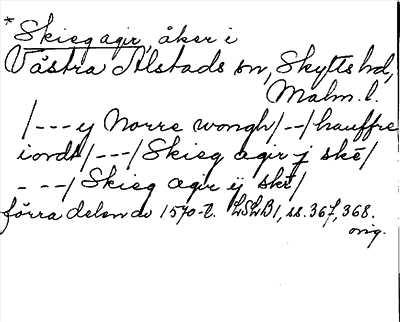 *Skieg agir, åker i
Västra Alstads sn, Skytts hd,
Malm. l.
/---ij Norre wongh/--/hauffre
iordt/---/Skieg agir j skē/
---/Skieg agir ij skē/
förra delen av 1570-t. LSLB1, ss. 367, 368.
orig.